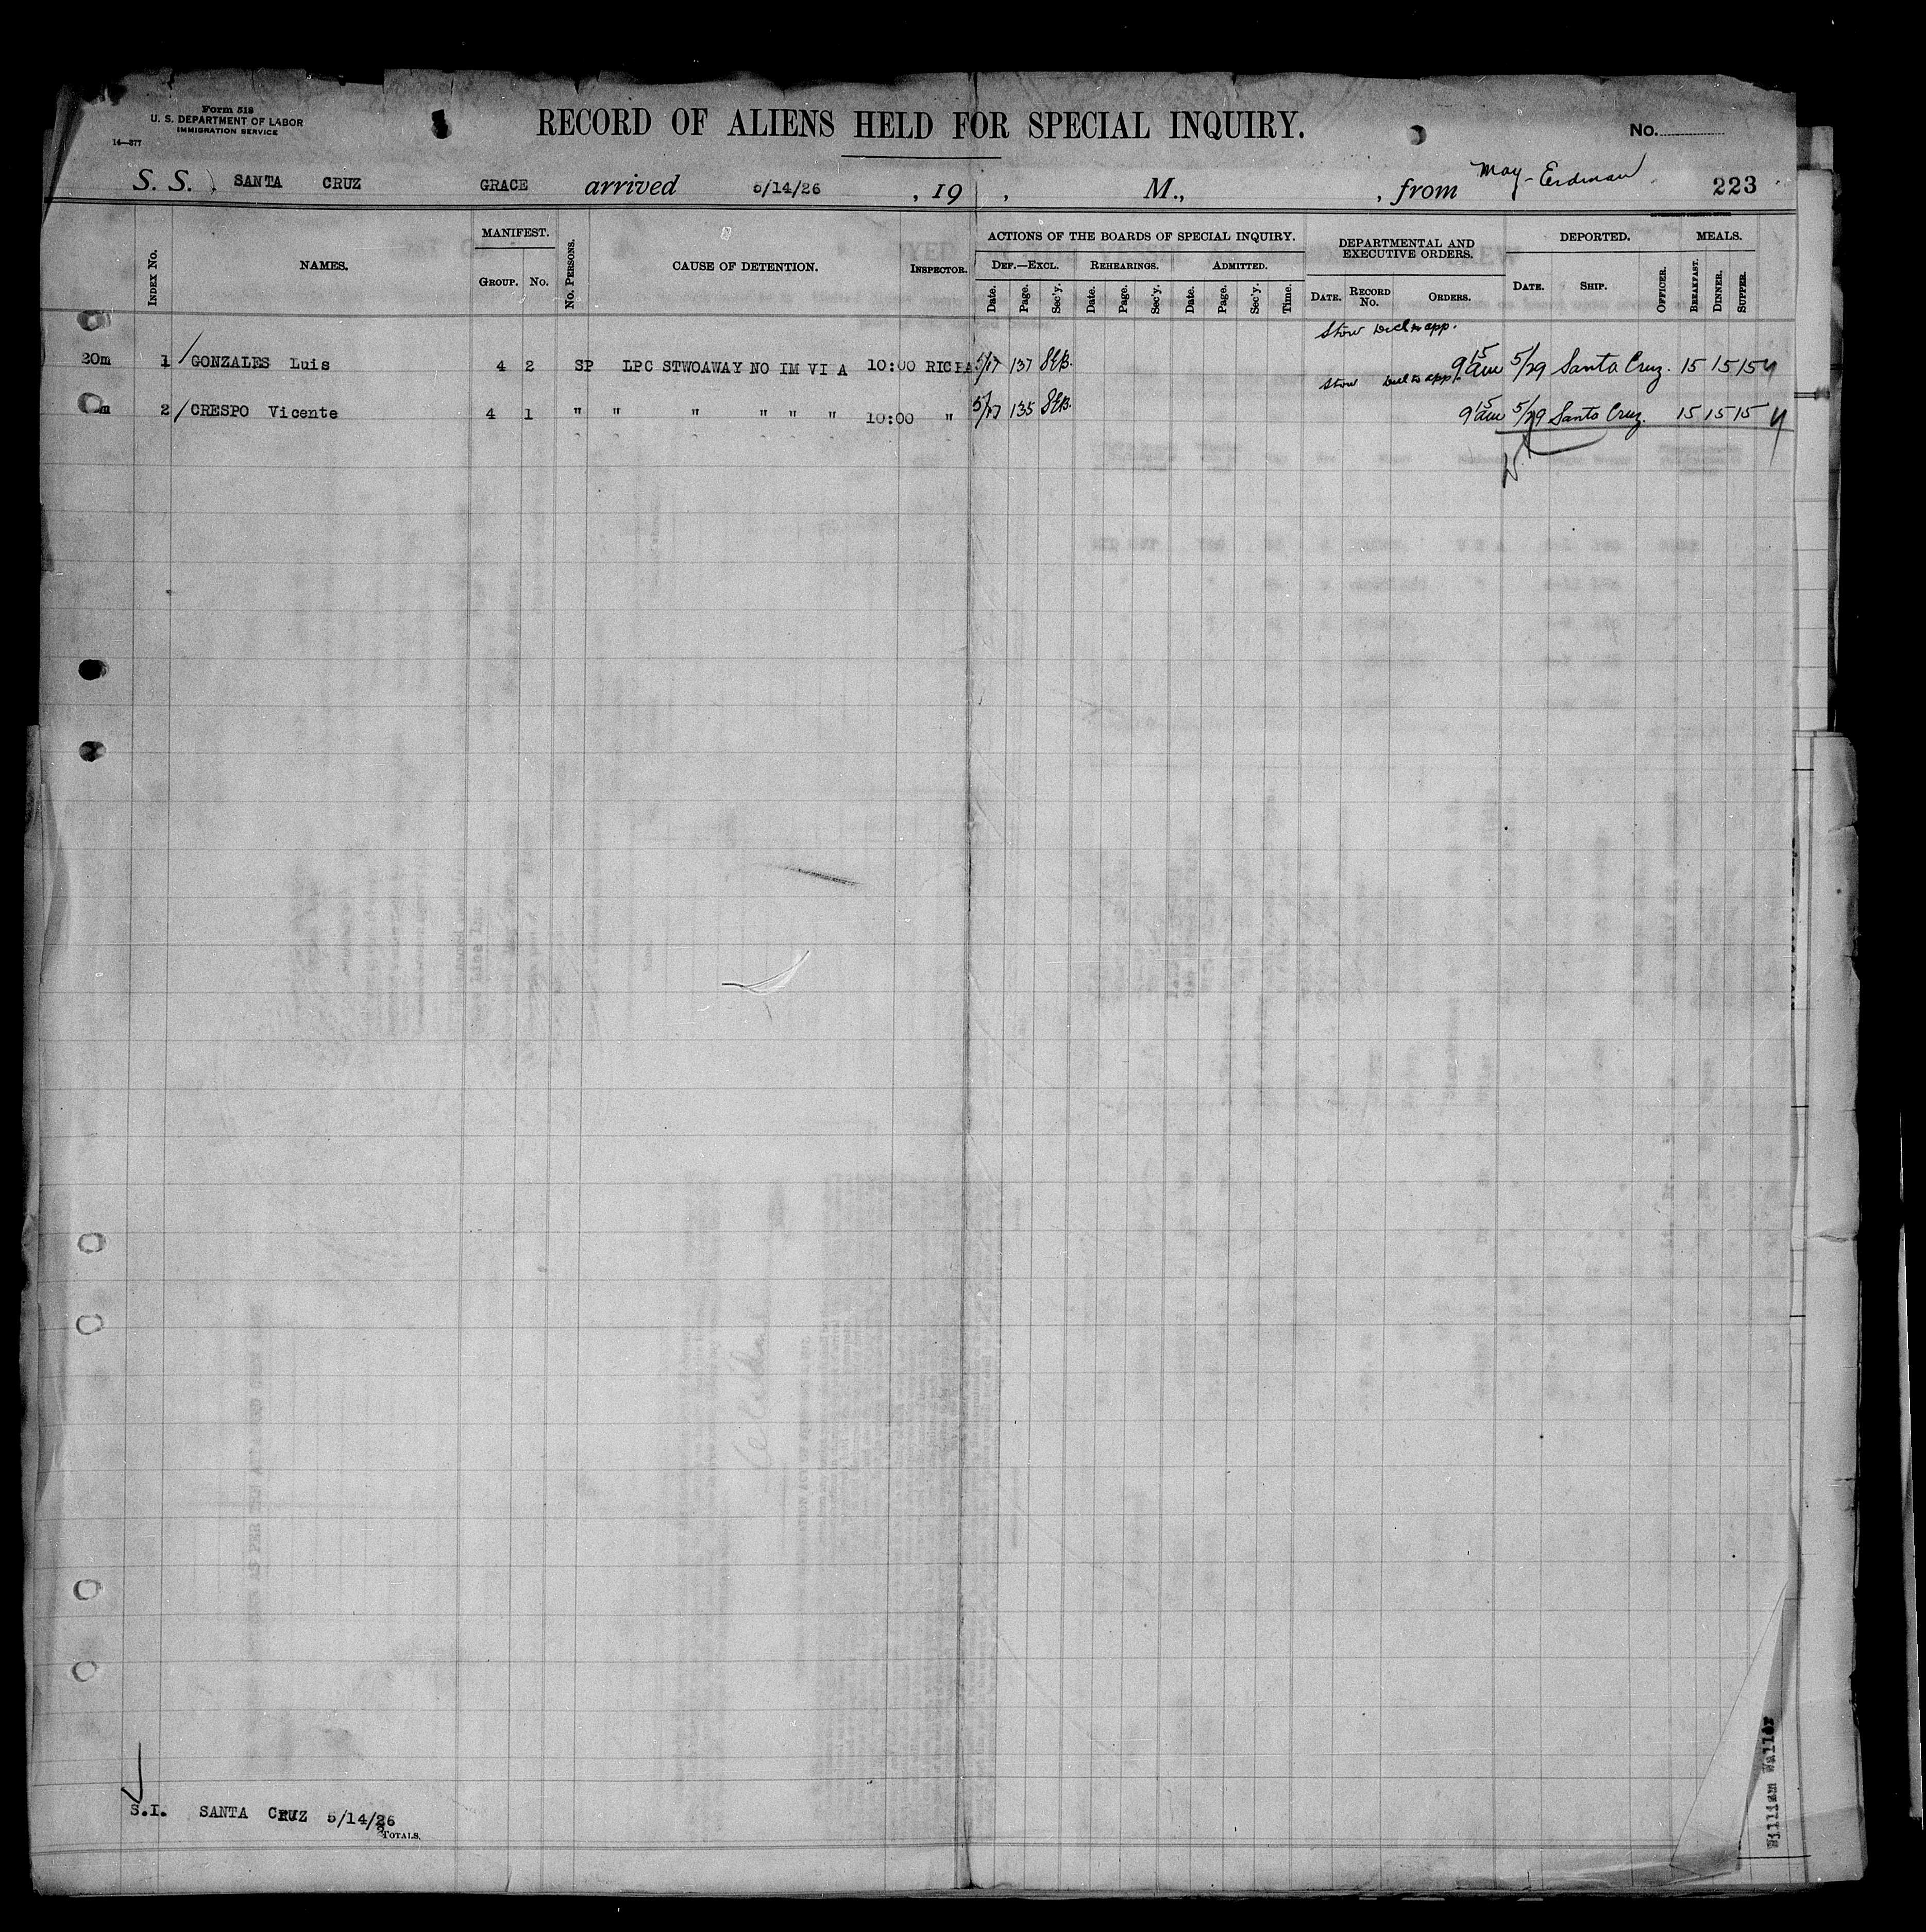 Form 518
U. S. DEPARTMENT OF LABOR
IMMIGRATION SERVICE
14—377
RECORD OF ALIENS HELD FOR SPECIAL INQUIRY.
No.
S. S. SANTA CRUZ GRACE arrived 5/14/26, 19 , M., , from May-Erdman 223
INDEX No.
NAMES.
MANIFEST.
GROUP. No.
No. PERSONS.
CAUSE OF DETENTION.
INSPECTOR.
ACTIONS OF THE BOARDS OF SPECIAL INQUIRY.
DEF.—EXCL. REHEARINGS. ADMITTED.
Date. Page. Sec'y. Date. Page. Sec'y. Date. Page. Sec'y. Time.
DEPARTMENTAL AND
EXECUTIVE ORDERS.
DATE. RECORD No. ORDERS.
DEPORTED.
DATE. SHIP. OFFICER.
MEALS.
BREAKFAST. DINNER. SUPPER.
Stow Decl to app.
20m 1 GONZALES Luis 4 2 SP LPC STWOAWAY NO IM VI A 10:00 RICHA 5/17 137 9 15 am 5/29 Santa Cruz. 15 15 15
Stow Decl to app.
m 2 CRESPO Vicente 4 1 " " " " " " 10:00 " 5/17 135 9 15 am 5/29 Santa Cruz. 15 15 15
S.I. SANTA CRUZ 5/14/26
TOTALS.
William Waller